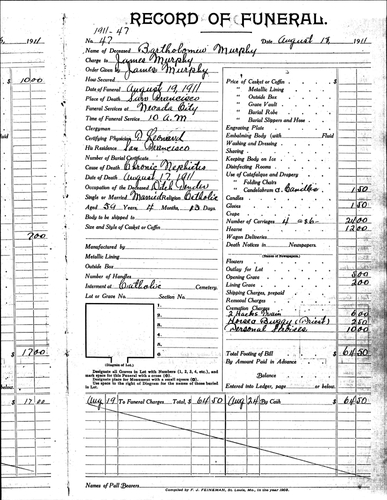 1911-47
RECORD OF FUNERAL.
1911
No. 47
Date August 18, 1911
Name of Deceased Bartholomew Murphy
Charge to James Murphy
Order Given by James Murphy
How Secured
Date of Funeral August 19, 1911
Place of Death San Francisco
Funeral Services at Nevada City
Time of Funeral Service 10 A.M
Clergyman
Certifying Physician
His Residence San Francisco
Number of Burial Certificate
Cause of Death Chronic Nephritis
Date of Death August 17, 1911
Occupation of the Deceased
Single or Married Married Religion Catholic
Aged 59 Years, 4 Months, 13 Days.
Body to be shipped to
Size and Style of Casket or Coffin
Manufactured by
Metallic Lining
Outside Box
Number of Handles
Interment at Catholic Cemetery.
Lot or Grave No. Section No.
1.
2.
3.
4.
5.
(Diagram of Lot.)
Designate all Graves in Lot with Numbers (1, 2, 3, 4, etc.), and
mark space for this Funeral with a cross (⊗).
Designate place for Monument with a small square (□).
Use space to the right of Diagram for the names of those buried
in Lot.
Price of Casket or Coffin
" Metallic Lining
" Outside Box
" Grave Vault
" Burial Robe
" Burial Slippers and Hose
Engraving Plate
Embalming Body (with Fluid)
Washing and Dressing
Shaving
Keeping Body on Ice
Disinfecting Rooms
Use of Catafalque and Drapery
" Folding Chairs
" Candelabrum & Candles 1 50
Candles
Gloves 1 50
Crape
Number of Carriages 4 @ $6- 24 00
Hearse 12 00
Wagon Deliveries
Death Notices in Newspapers.
(Names of Newspapers.)
Flowers
Outlay for Lot
Opening Grave 5 00
Lining Grave 2 00
Shipping Charges, prepaid
Removal Charges
Cremation Charges
2 Hacks Train 6 00
Horse & Buggy (Priest) 2 50
Personal Services 10 00
Total Footing of Bill $ 64 50
By Amount Paid in Advance
Balance
Entered into Ledger, page or below.
$ 10 00
7 00
$ 17 00
$ 17 00
Aug 19 To Funeral Charges Total, $ 64 50 Aug 24 By Cash $ 64 50
Names of Pall Bearers
Compiled by F. J. FEINEMAN, St. Louis, Mo., in the year 1908.